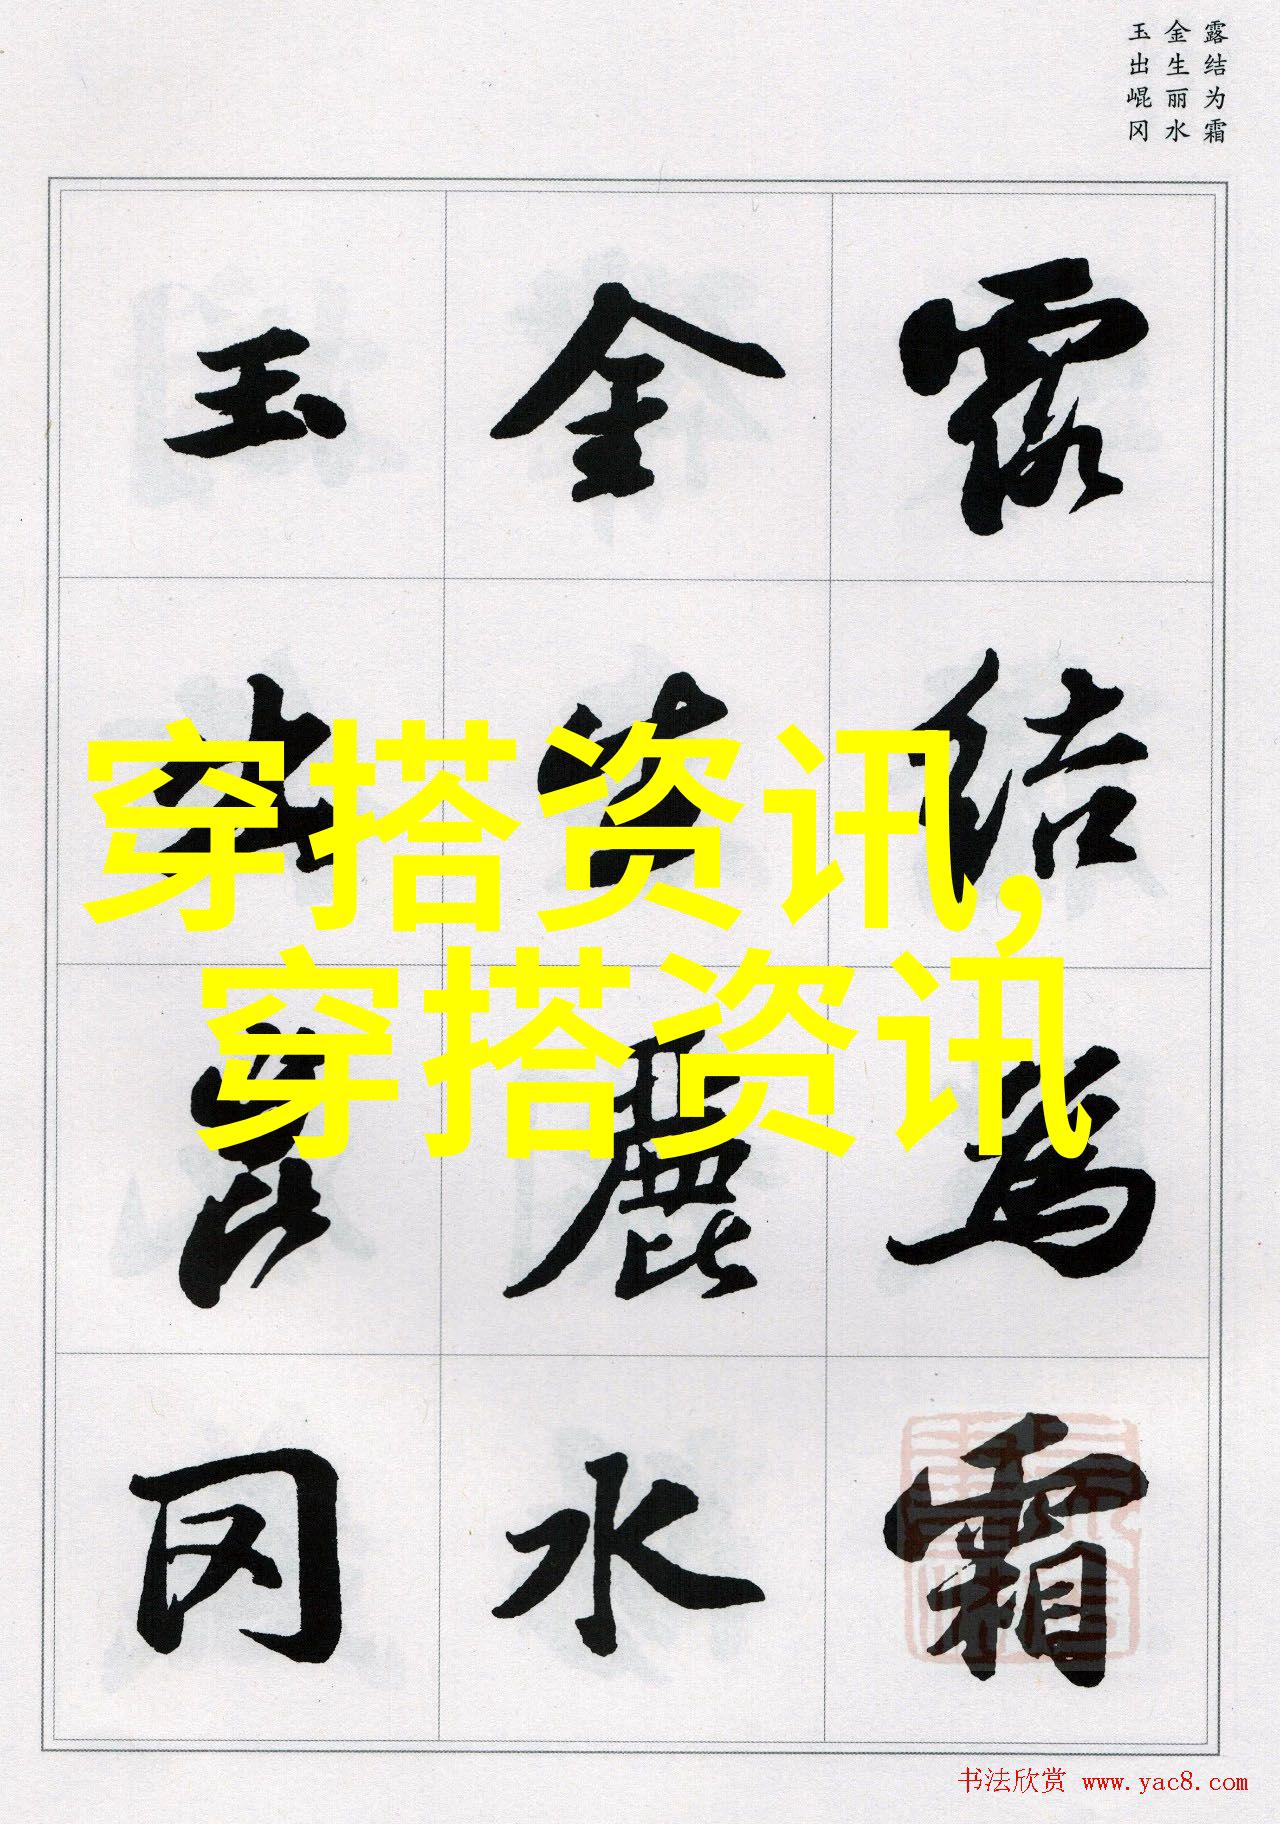 露结为霜
金生丽水
玉出崐冈
露結為霜
金生麗水
玉出崑冈
穿搭资讯,
穿搭资讯
书法欣赏 www.yac8.com